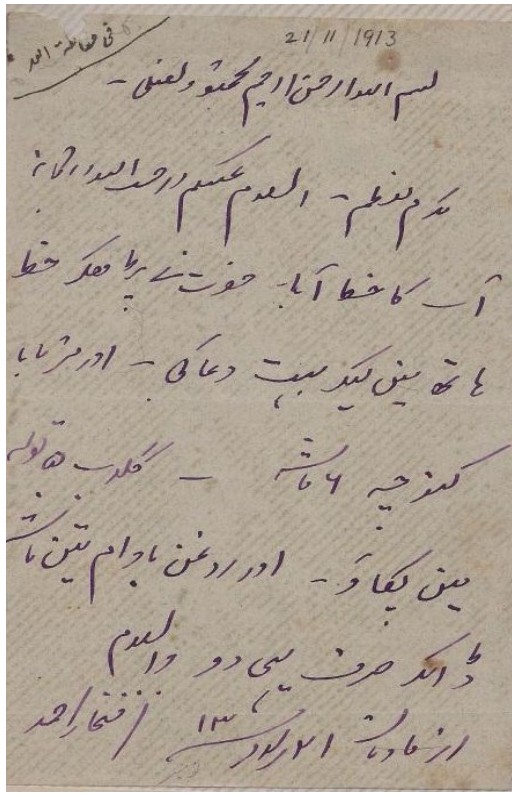 21/11/1913
بسم اللہ الرحمن الرحیم نحمدہ ونصلی۔
مکرم معظم۔ السلام علیکم ورحمۃ اللہ وبرکاتہ
آپ کا خط آیا۔ حضرت نے پڑھا بعد خط
ہاتھ میں لیکر بہت دعا کی۔ اور فرمایا
۶ ماشہ — گلاب ۵ تولہ
میں پکاؤ۔ اور روغن بادام تین ماشہ
ڈالکر صرف یہی دو والسلام
از قادیان ۲۱ نومبر ۱۳ افتخار احمد